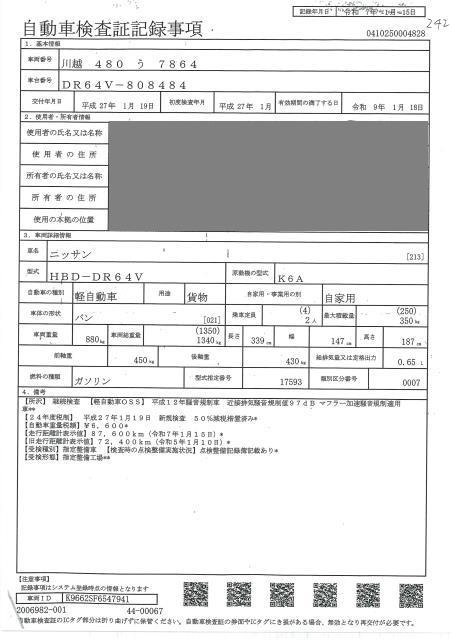 記録年月日 令和 7年 1月 15日
242
自動車検査証記録事項
0410250004828
1. 基本情報
車両番号 川越 480 う 7864
車台番号 DR64V-808484
交付年月日 平成 27年 1月 19日 初度検査年月 平成 27年 1月 有効期間の満了する日 令和 9年 1月 18日
2. 使用者・所有者情報
使用者の氏名又は名称
使用者の住所
所有者の氏名又は名称
所有者の住所
使用の本拠の位置
3. 車両詳細情報
車名 ニッサン [213]
型式 HBD-DR64V 原動機の型式 K6A
自動車の種別 軽自動車 用途 貨物 自家用・事業用の別 自家用
車体の形状 バン [021] 乗車定員 (4) 2人 最大積載量 (250) 350kg
車両重量 880kg 車両総重量 (1350) 1340kg 長さ 339cm 幅 147cm 高さ 187cm
前軸重 450kg 後軸重 430kg 総排気量又は定格出力 0.65L
燃料の種類 ガソリン 型式指定番号 17593 類別区分番号 0007
4. 備考
【所沢】 継続検査 【軽自動車OSS】 平成12年騒音規制車 近接排気騒音規制値97dB マフラー加速騒音規制適用
車**
【24年度税制】 平成27年1月19日 新規検査 50%減税措置済み*
【自動車重量税額】 ¥6,600*
【走行距離計表示値】 87,600km (令和7年1月15日)*
【旧走行距離計表示値】 72,400km (令和5年1月10日)*
【受検種別】 指定整備車 【検査時の点検整備実施状況】 点検整備記録簿記載あり*
【受検形態】 指定整備工場**
【注意事項】
記録事項はシステム登録時点の情報となります
車両ID K9662SF6547941
2006982-001 44-00067
自動車検査証のICタグ部分は折り曲げずに保管ください。自動車検査証の券面やICタグにき損がある場合、無効となり再交付が必要です。